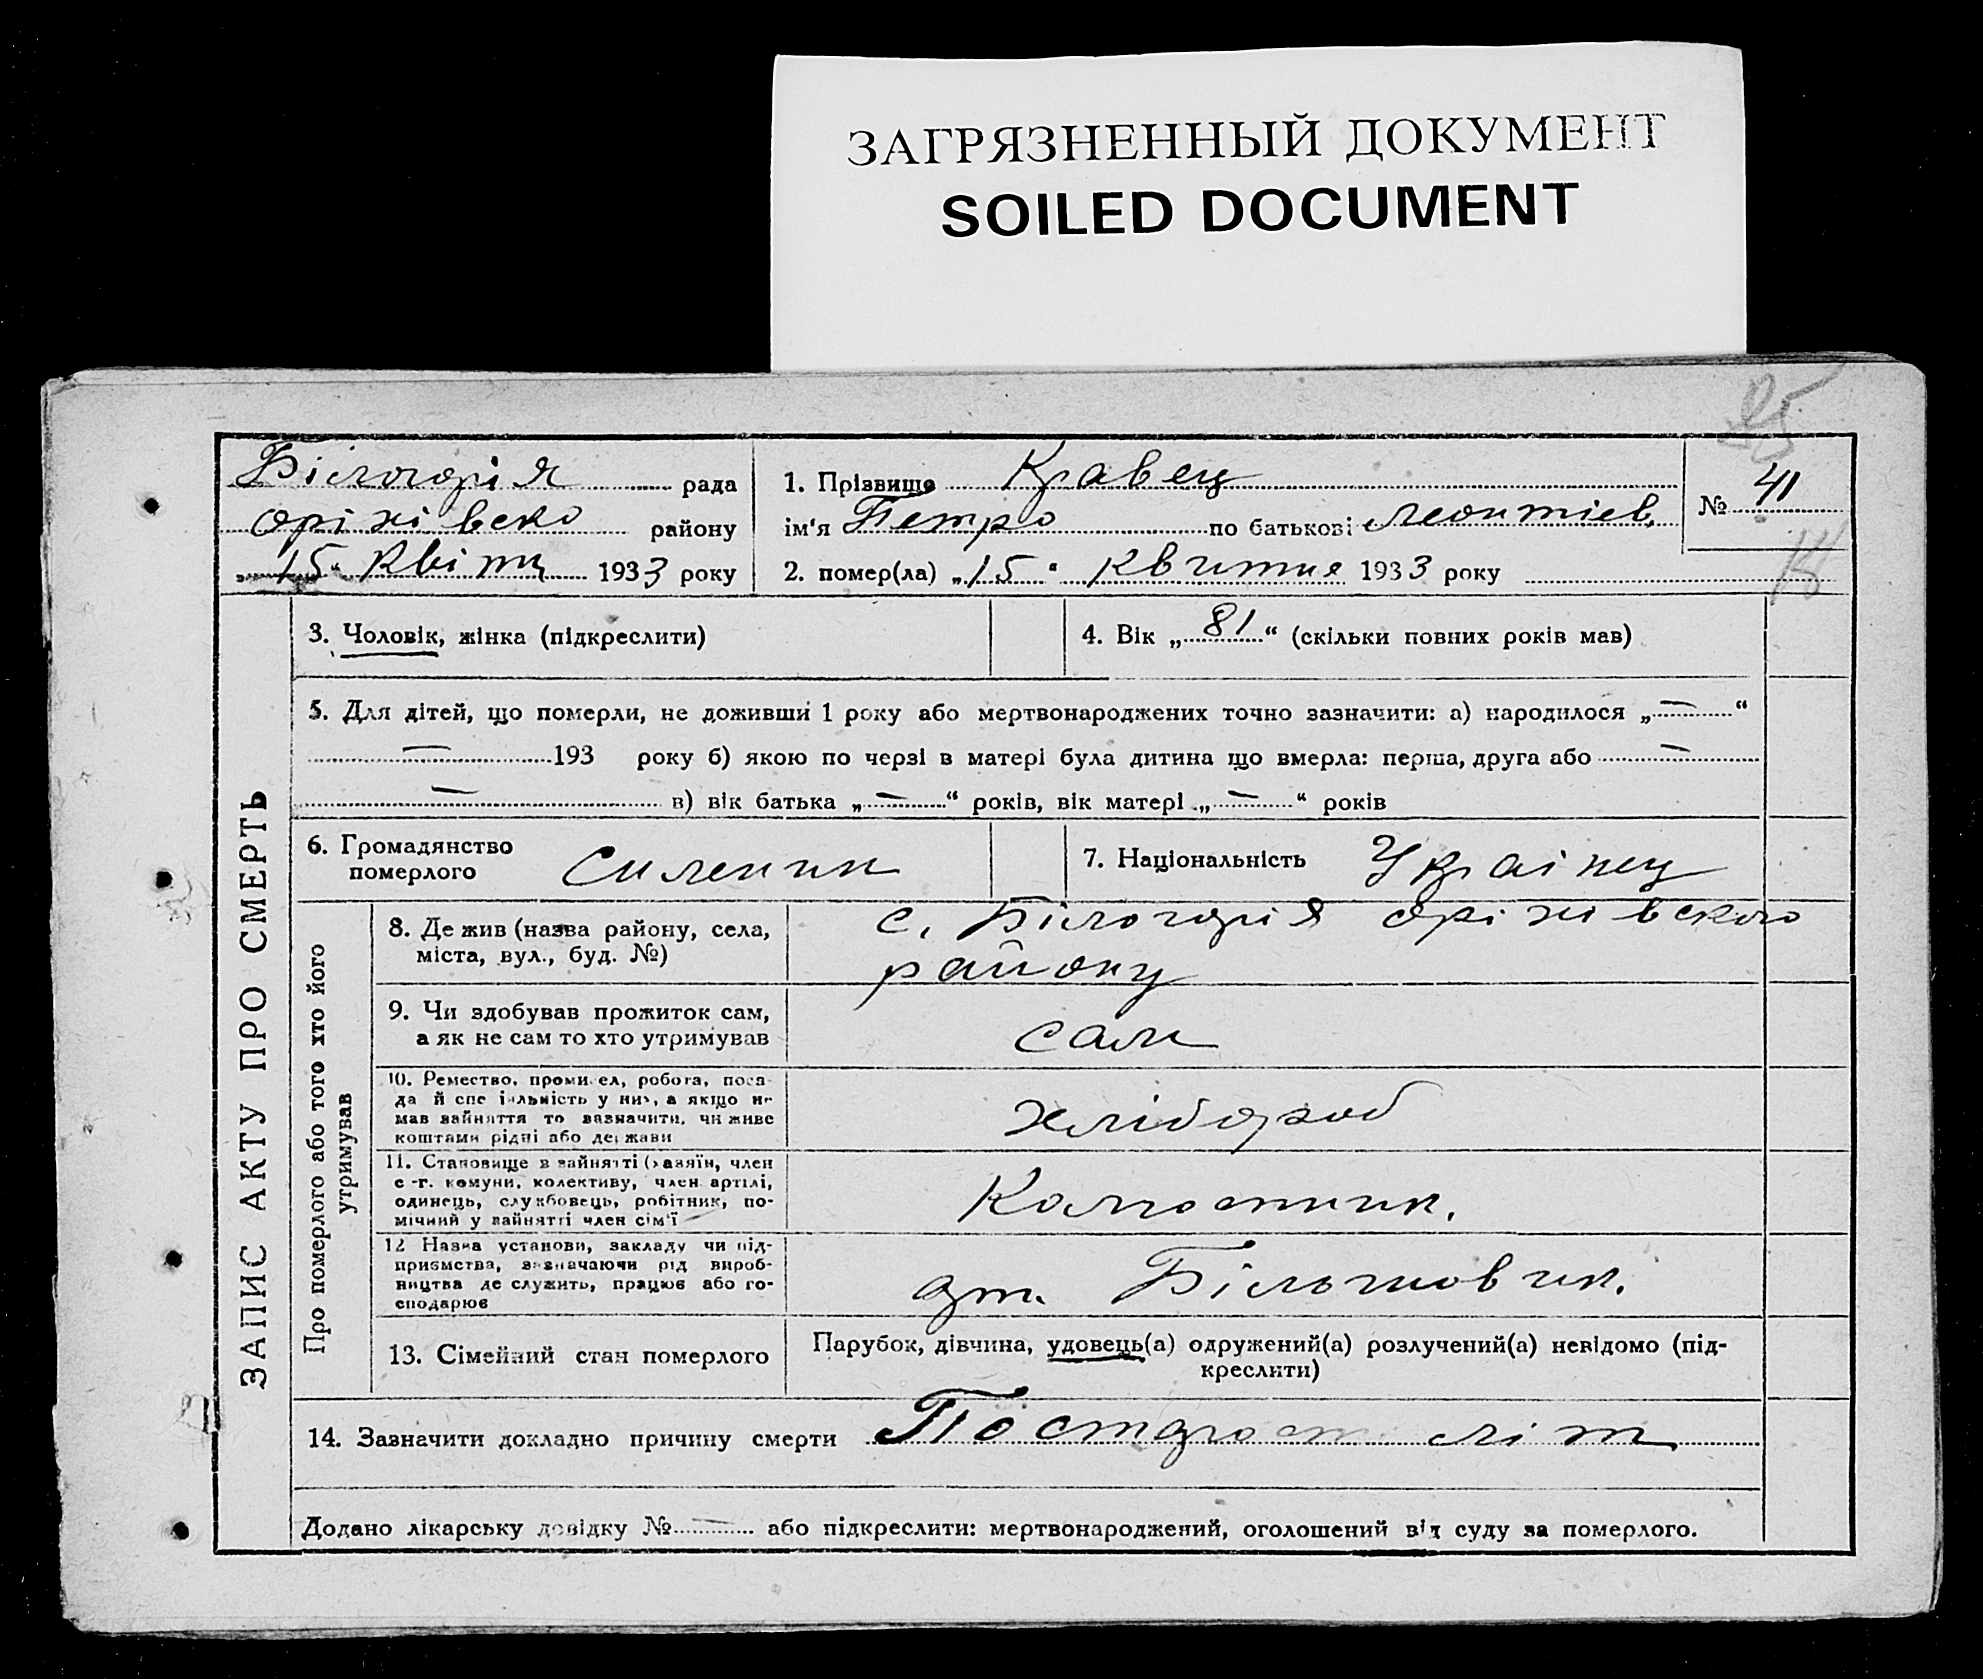 ЗАГРЯЗНЕННЫЙ ДОКУМЕНТ
SOILED DOCUMENT
25
Білогорія рада
оріхівсko району
15 квітн 1933 року
1. Прізвище Кравец
ім'я Петро по батькові Леонтіев.
2. помер(ла) „15" квитня 1933 року
№ 41
ЗАПИС АКТУ ПРО СМЕРТЬ
3. Чоловік, жінка (підкреслити)
4. Вік „81“ (скільки повних років мав)
5. Для дітей, що померли, не доживши 1 року або мертвонароджених точно зазначити: а) народилося „—“
— 193 року б) якою по черзі в матері була дитина що вмерла: перша, друга або —
— в) вік батька „—“ років, вік матері „—“ років
6. Громадянство
померлого
7. Національність Украінец
Про померлого або того хто його
утримував
8. Де жив (назва району, села,
міста, вул., буд. №)
с. Білогорія оріхівского
району
9. Чи здобував прожиток сам,
а як не сам то хто утримував
сам
10. Ремество, промисел, робота, поса-
да й спеціяльність у них, а якщо не
мав зайняття то зазначити, чи живе
коштами рідні або держави
хлібороб
11. Становище в зайнятті (хазяїн, член
с-г. комуни, колективу, член артілі,
одинець, службовець, робітник, по-
мічний у зайнятті член сім'ї
Колгоспник.
12 Назва установи, закладу чи під-
приємства, зазначаючи рід вироб-
ництва де служить, працює або го-
сподарює
арт. Більшовик.
13. Сімейний стан померлого
Парубок, дівчина, удовець(а) одружений(а) розлучений(а) невідомо (під-
креслити)
14. Зазначити докладно причину смерти По старост літ
Додано лікарську довідку № — або підкреслити: мертвонароджений, оголошений від суду за померлого.